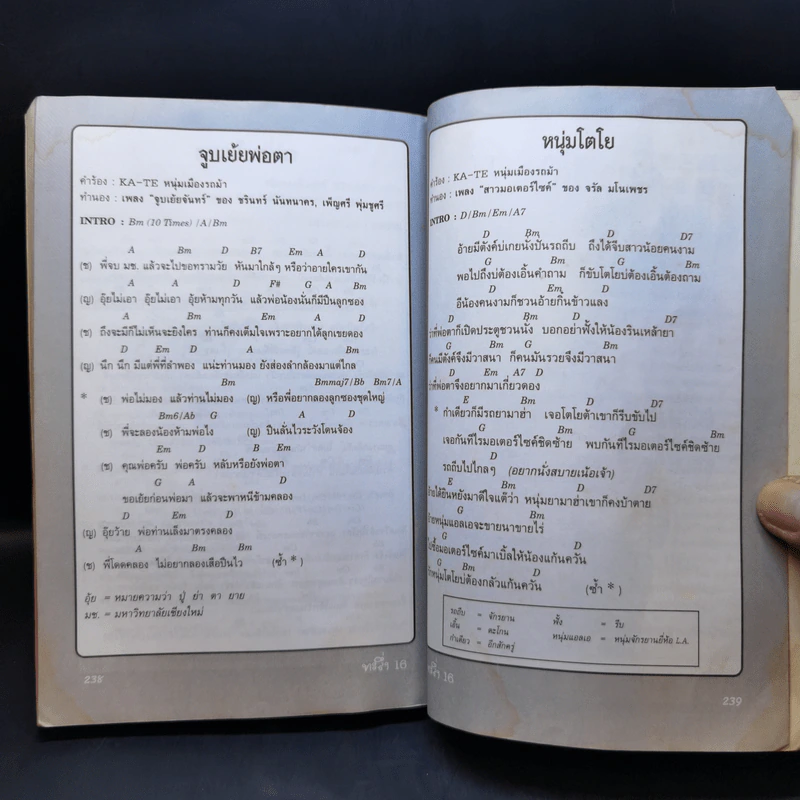 จูบเย้ยพ่อตา
คำร้อง : KA-TE หนุ่มเมืองรถม้า
ทำนอง : เพลง "จูบเย้ยจันทร์" ของ ชรินทร์ นันทนาคร, เพ็ญศรี พุ่มชูศรี
INTRO : Bm (10 Times) /A/Bm
A Bm D B7 Em A D
(ช) พี่จบ มช. แล้วจะไปขอทรามวัย หันมาใกล้ๆ หรือว่าอายใครเขากัน
A A D F# G A Bm
(ญ) อุ๊ยไม่เอา อุ๊ยไม่เอา อุ๊ยห้ามทุกวัน แล้วพ่อน้องนั้นก็มีปืนลูกซอง
A Bm A D
(ช) ถึงจะมีก็ไม่เห็นจะยิงใคร ท่านก็คงเต็มใจเพราะอยากได้ลูกเขยดอง
D Em D A Bm
(ญ) นึก นึก มีแต่พี่ที่ลำพอง แน่ะท่านมอง ยังส่องลำกล้องมาแต่ไกล
Bm Bmmaj7/Bb Bm7/A
* (ช) พ่อไม่มอง แล้วท่านไม่มอง (ญ) หรือพี่อยากลองลูกซองชุดใหญ่
Bm6/Ab G A D
(ช) พี่จะลองน้องห้ามพ่อไง (ญ) ปืนลั่นไวระวังโดนจ้อง
Em D B Em
(ช) คุณพ่อครับ พ่อครับ หลับหรือยังพ่อตา
G A D
ขอเย้ยก่อนพ่อมา แล้วจะพาหนีข้ามคลอง
D Em D
(ญ) อุ๊ยว้าย พ่อท่านเล็งมาตรงคลอง
A Bm Bm
(ช) พี่โดดคลอง ไม่อยากลองเสือปืนไว (ซ้ำ *)
อุ้ย = หมายความว่า ปู่ ย่า ตา ยาย
มช. = มหาวิทยาลัยเชียงใหม่
238
16
หนุ่มโตโย
คำร้อง : KA-TE หนุ่มเมืองรถม้า
ทำนอง : เพลง "สาวมอเตอร์ไซค์" ของ จรัล มโนเพชร
INTRO : D/Bm/Em/A7
D Bm D D7
อ้ายมีตังค์บ่เกยนั่งปั่นรถถีบ ถึงได้จีบสาวน้อยคนงาม
G Bm G Bm
พอไปถึงบ่ต้องเอิ้นคำถาม ก็ขับโตโยบ่ต้องเอิ้นต้องถาม
Em D
อีน้องคนงามก็ชวนอ้ายกินข้าวแลง
D Bm D D7
ว่าที่พ่อตาก็เปิดประตูชวนนั่ง บอกอย่าฟั่งให้น้องรินเหล้ายา
G Bm G Bm
ก็คนมีตังค์จึงมีวาสนา ก็คนมันรวยจึงมีวาสนา
D Em A7 D
ว่าที่พ่อตาจึงอยากมาเกี่ยวดอง
E Bm D D7
* กำเดียวก็มีรถยามาฮ่า เจอโตโยต้าเขาก็รีบขับไป
G Bm G Bm
เจอกันทีไรมอเตอร์ไซค์ชิดซ้าย พบกันทีไรมอเตอร์ไซค์ชิดซ้าย
D
รถถีบไปไกลๆ (อยากนั่งสบายเน้อเจ้า)
E Bm D D7
อ้ายได้ยินหยังมาดีใจแต๊ว่า หนุ่มยามาฮ่าเขาก็คงบ้าตาย
G Bm
อ้ายหนุ่มแอลเอจะขายนาขายไร่
G D
ไปซื้อมอเตอร์ไซค์มาเบิ้ลให้น้องแก้นควัน
G Bm D
อ้ายหนุ่มโตโยบ่ต้องกลัวแก้นควัน (ซ้ำ *)
รถถีบ = จักรยาน ฟั่ง = รีบ
เอิ้น = ตะโกน หนุ่มแอลเอ = หนุ่มจักรยานยี่ห้อ L.A.
กำเดียว = อีกสักครู่
16
239